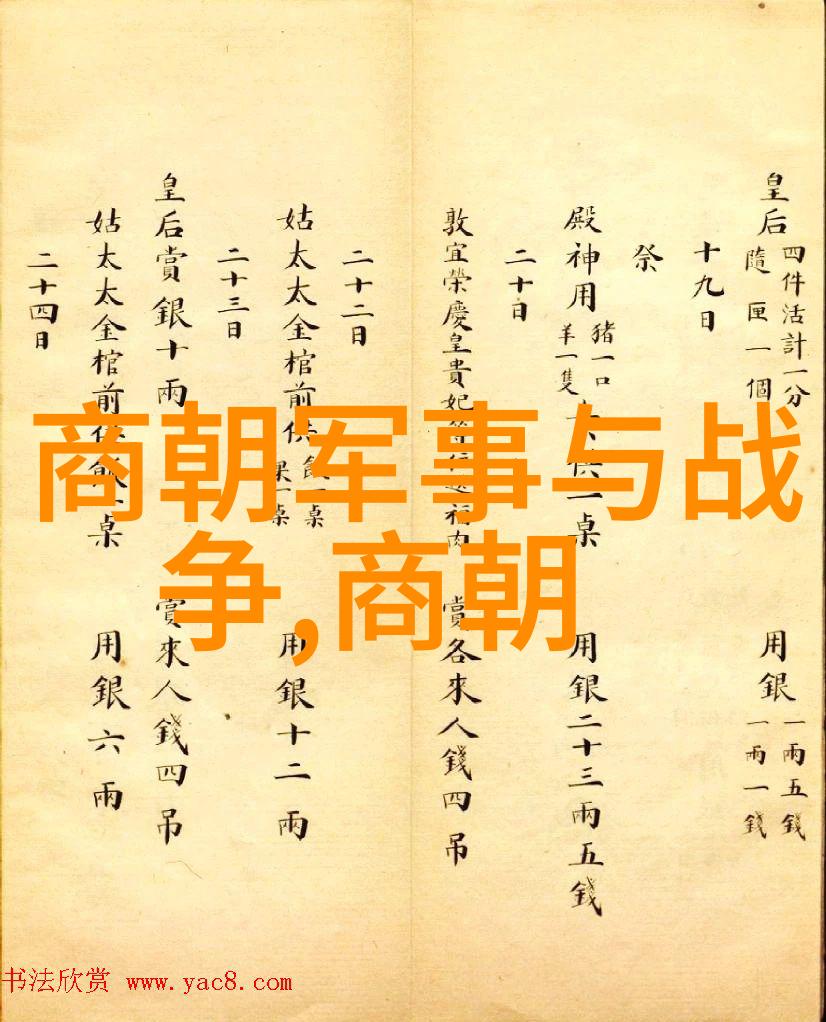 皇后 四件活計一分 隨匣一個 用銀 一兩五錢 一兩一錢
十九日
祭
殿神用 豬一口 羊一隻 供一桌 用銀二十三兩五錢
二十日
敦宜榮慶皇貴妃等 福肉 賞各來人錢四吊
二十二日
姑太太金棺前供 一桌 一桌 用銀十二兩
二十三日
皇后賞銀十兩 賞來人錢四吊
姑太太金棺前供飯一桌 用銀六兩
二十四日
商朝军事与战
争,商朝
书法欣赏 www.yac8.com